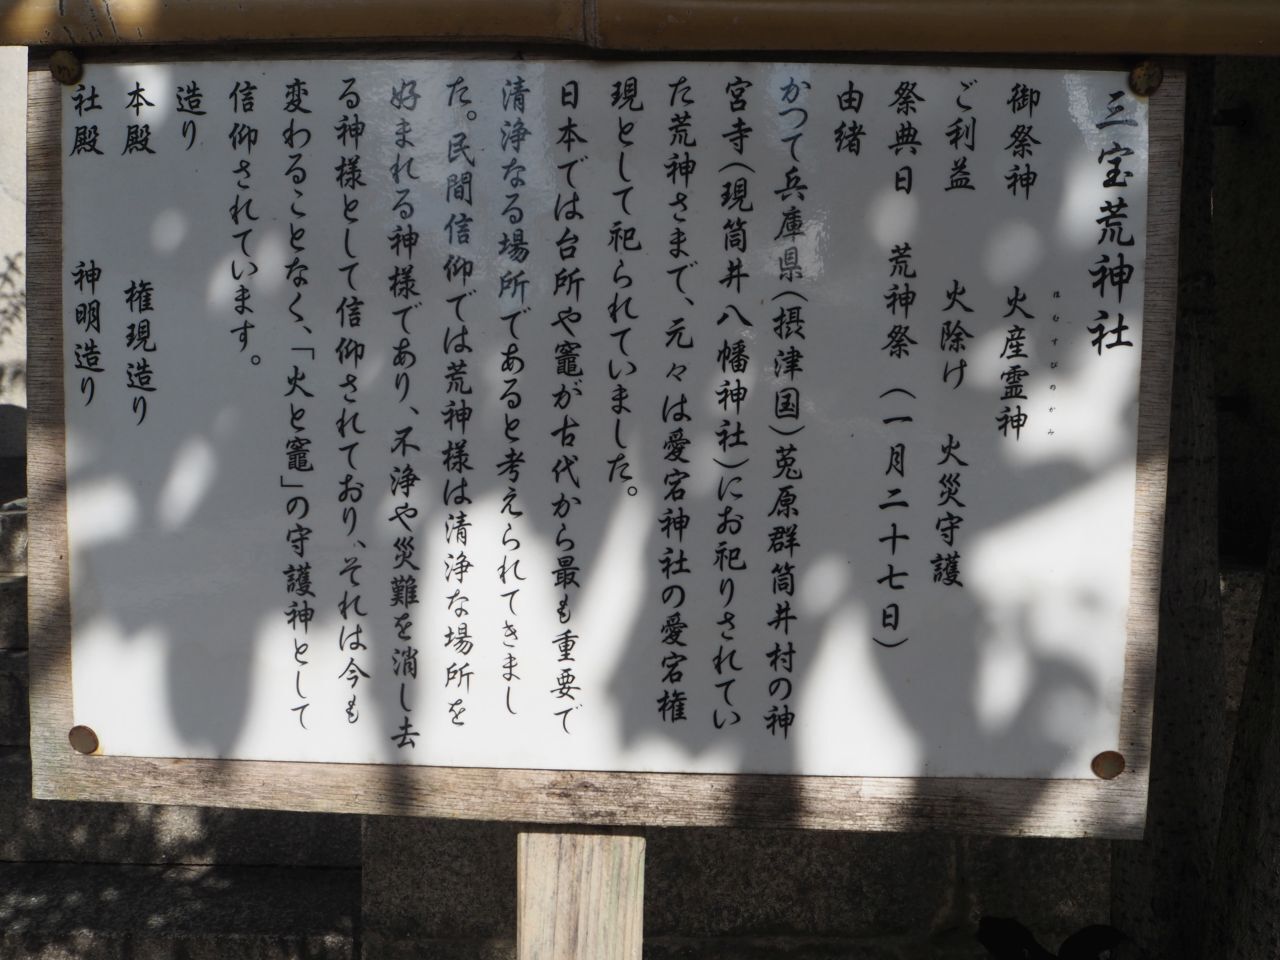 三宝荒神社
御祭神　火産霊神
ほむすびのかみ
ご利益　火除け　火災守護
祭典日　荒神祭　（一月二十七日）
由緒
かつて兵庫県（摂津国）菟原群筒井村の神
宮寺（現筒井八幡神社）にお祀りされてい
た荒神さまで、元々は愛宕神社の愛宕権
現として祀られていました。
日本では台所や竈が古代から最も重要で
清浄なる場所であると考えられてきまし
た。民間信仰では荒神様は清浄な場所を
好まれる神様であり、不浄や災難を消し去
る神様として信仰されており、それは今も
変わることなく、「火と竈」の守護神として
信仰されています。
造り
本殿　権現造り
社殿　神明造り